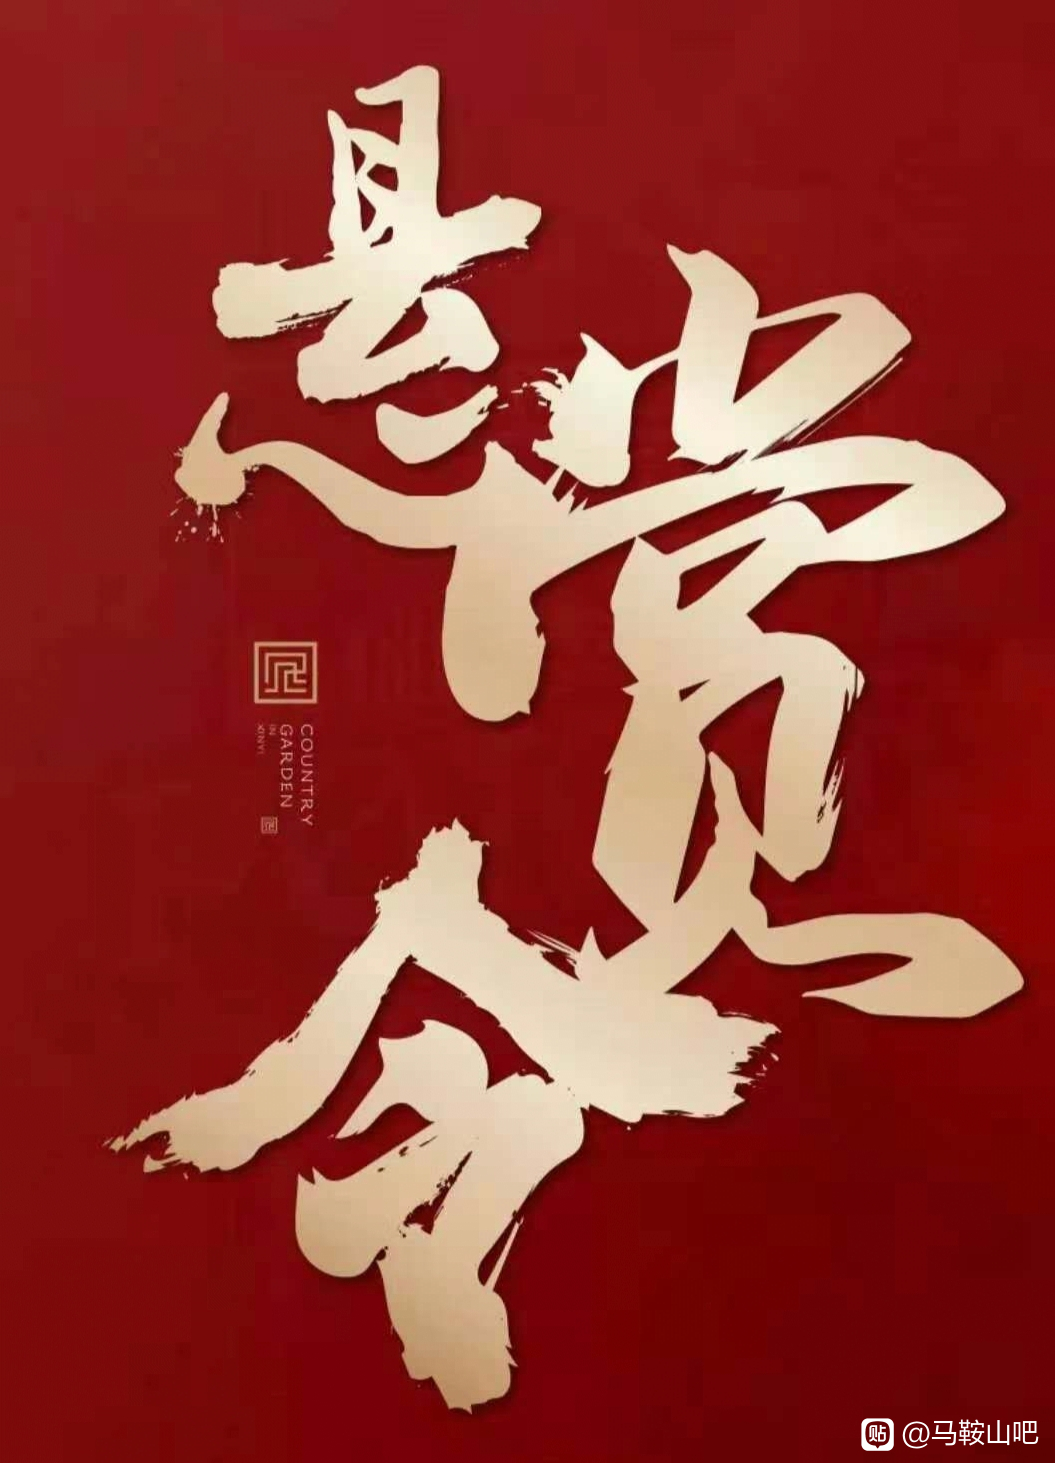 悬赏令
COUNTRY
GARDEN
IN
XINYI
贴 @马鞍山吧